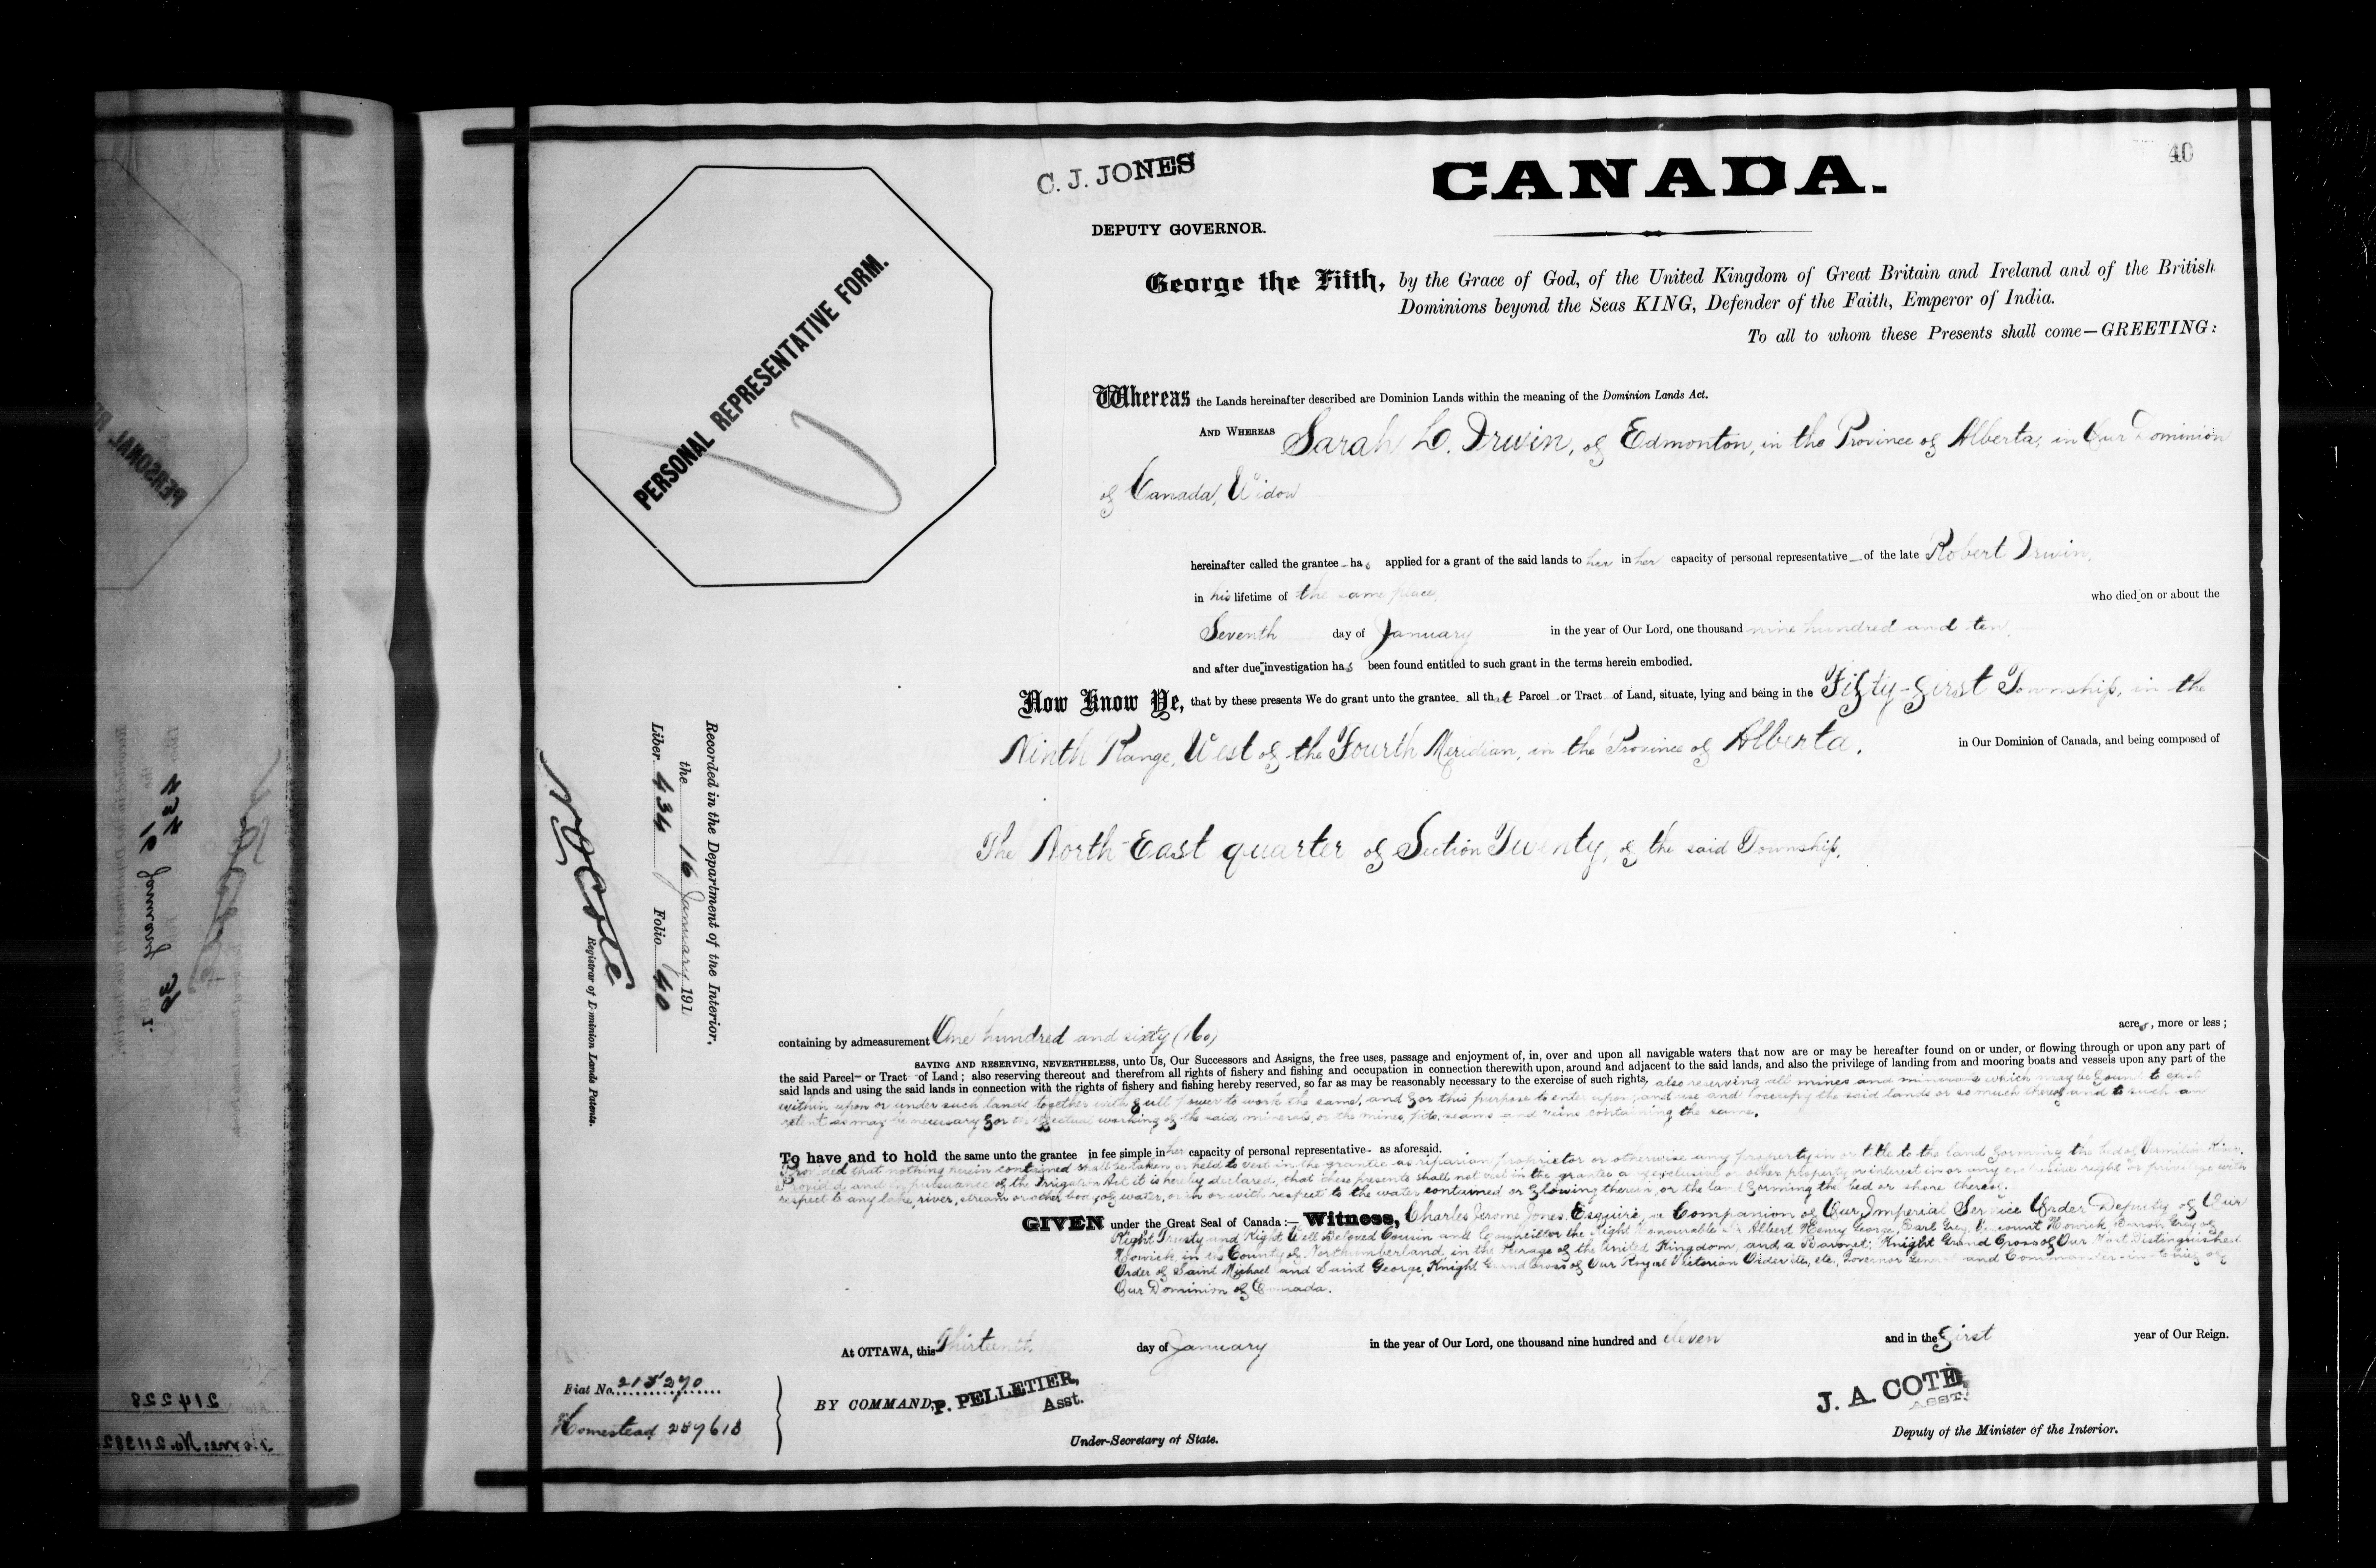 40
C. J. JONES
CANADA.
DEPUTY GOVERNOR.
George the Fifth, by the Grace of God, of the United Kingdom of Great Britain and Ireland and of the British
Dominions beyond the Seas KING, Defender of the Faith, Emperor of India.
To all to whom these Presents shall come—GREETING:
PERSONAL REPRESENTATIVE FORM.
Whereas the Lands hereinafter described are Dominion Lands within the meaning of the Dominion Lands Act.
AND WHEREAS Sarah L. Irwin, of Edmonton, in the Province of Alberta, in Our Dominion
of Canada, Widow
hereinafter called the grantee has applied for a grant of the said lands to her in her capacity of personal representative of the late Robert Irwin,
in his lifetime of the same place, who died on or about the
Seventh day of January in the year of Our Lord, one thousand nine hundred and ten,
and after due investigation has been found entitled to such grant in the terms herein embodied.
Now Know Ye, that by these presents We do grant unto the grantee all that Parcel or Tract of Land, situate, lying and being in the Fifty-first Township, in the
Ninth Range, West of the Fourth Meridian, in the Province of Alberta, in Our Dominion of Canada, and being composed of
The North-East quarter of Section Twenty, of the said Township,
Recorded in the Department of the Interior,
the 16 January 191
Liber 434 Folio 40
N O Coté
Registrar of Dominion Lands Patents.
containing by admeasurement One hundred and sixty (160) acres, more or less;
SAVING AND RESERVING, NEVERTHELESS, unto Us, Our Successors and Assigns, the free uses, passage and enjoyment of, in, over and upon all navigable waters that now are or may be hereafter found on or under, or flowing through or upon any part of
the said Parcel or Tract of Land; also reserving thereout and therefrom all rights of fishery and fishing and occupation in connection therewith upon, around and adjacent to the said lands, and also the privilege of landing from and mooring boats and vessels upon any part of the
said lands and using the said lands in connection with the rights of fishery and fishing hereby reserved, so far as may be reasonably necessary to the exercise of such rights, also reserving all mines and minerals which may be found to exist
within upon or under such lands together with full power to work the same, and for this purpose to enter upon, and use and occupy the said lands or so much thereof and to such an
extent as may be necessary for the effectual working of the said minerals, or the mines, pits, seams and veins containing the same.
To have and to hold the same unto the grantee in fee simple in her capacity of personal representative as aforesaid.
Provided that nothing herein contained shall be taken or held to vest in the grantee as riparian proprietor or otherwise any property in or title to the land forming the bed of Vermilion River.
Provided and in pursuance of the Irrigation Act it is hereby declared, that these presents shall not vest in the grantee any exclusive or other property or interest in or any exclusive right or privilege with
respect to any lake, river, stream or other body of water, or in or with respect to the water contained or flowing therein, or the land forming the bed or shore thereof.
GIVEN under the Great Seal of Canada:— Witness, Charles Jerome Jones, Esquire, a Companion of Our Imperial Service Order Deputy of Our
Right Trusty and Right Well Beloved Cousin and Councillor the Right Honourable Sir Albert Henry George, Earl Grey, Viscount Howick, Baron Grey of
Howick, in the County of Northumberland, in the Peerage of the United Kingdom, and a Baronet; Knight Grand Cross of Our Most Distinguished
Order of Saint Michael and Saint George, Knight Grand Cross of Our Royal Victorian Order etc., etc., Governor General and Commander-in-Chief of
Our Dominion of Canada.
At OTTAWA, this Thirteenth day of January in the year of Our Lord, one thousand nine hundred and eleven and in the first year of Our Reign.
Fiat No. 215270
Homestead 259618
BY COMMAND, P. PELLETIER,
Asst.
Under-Secretary of State.
J. A. COTE,
ASST.
Deputy of the Minister of the Interior.